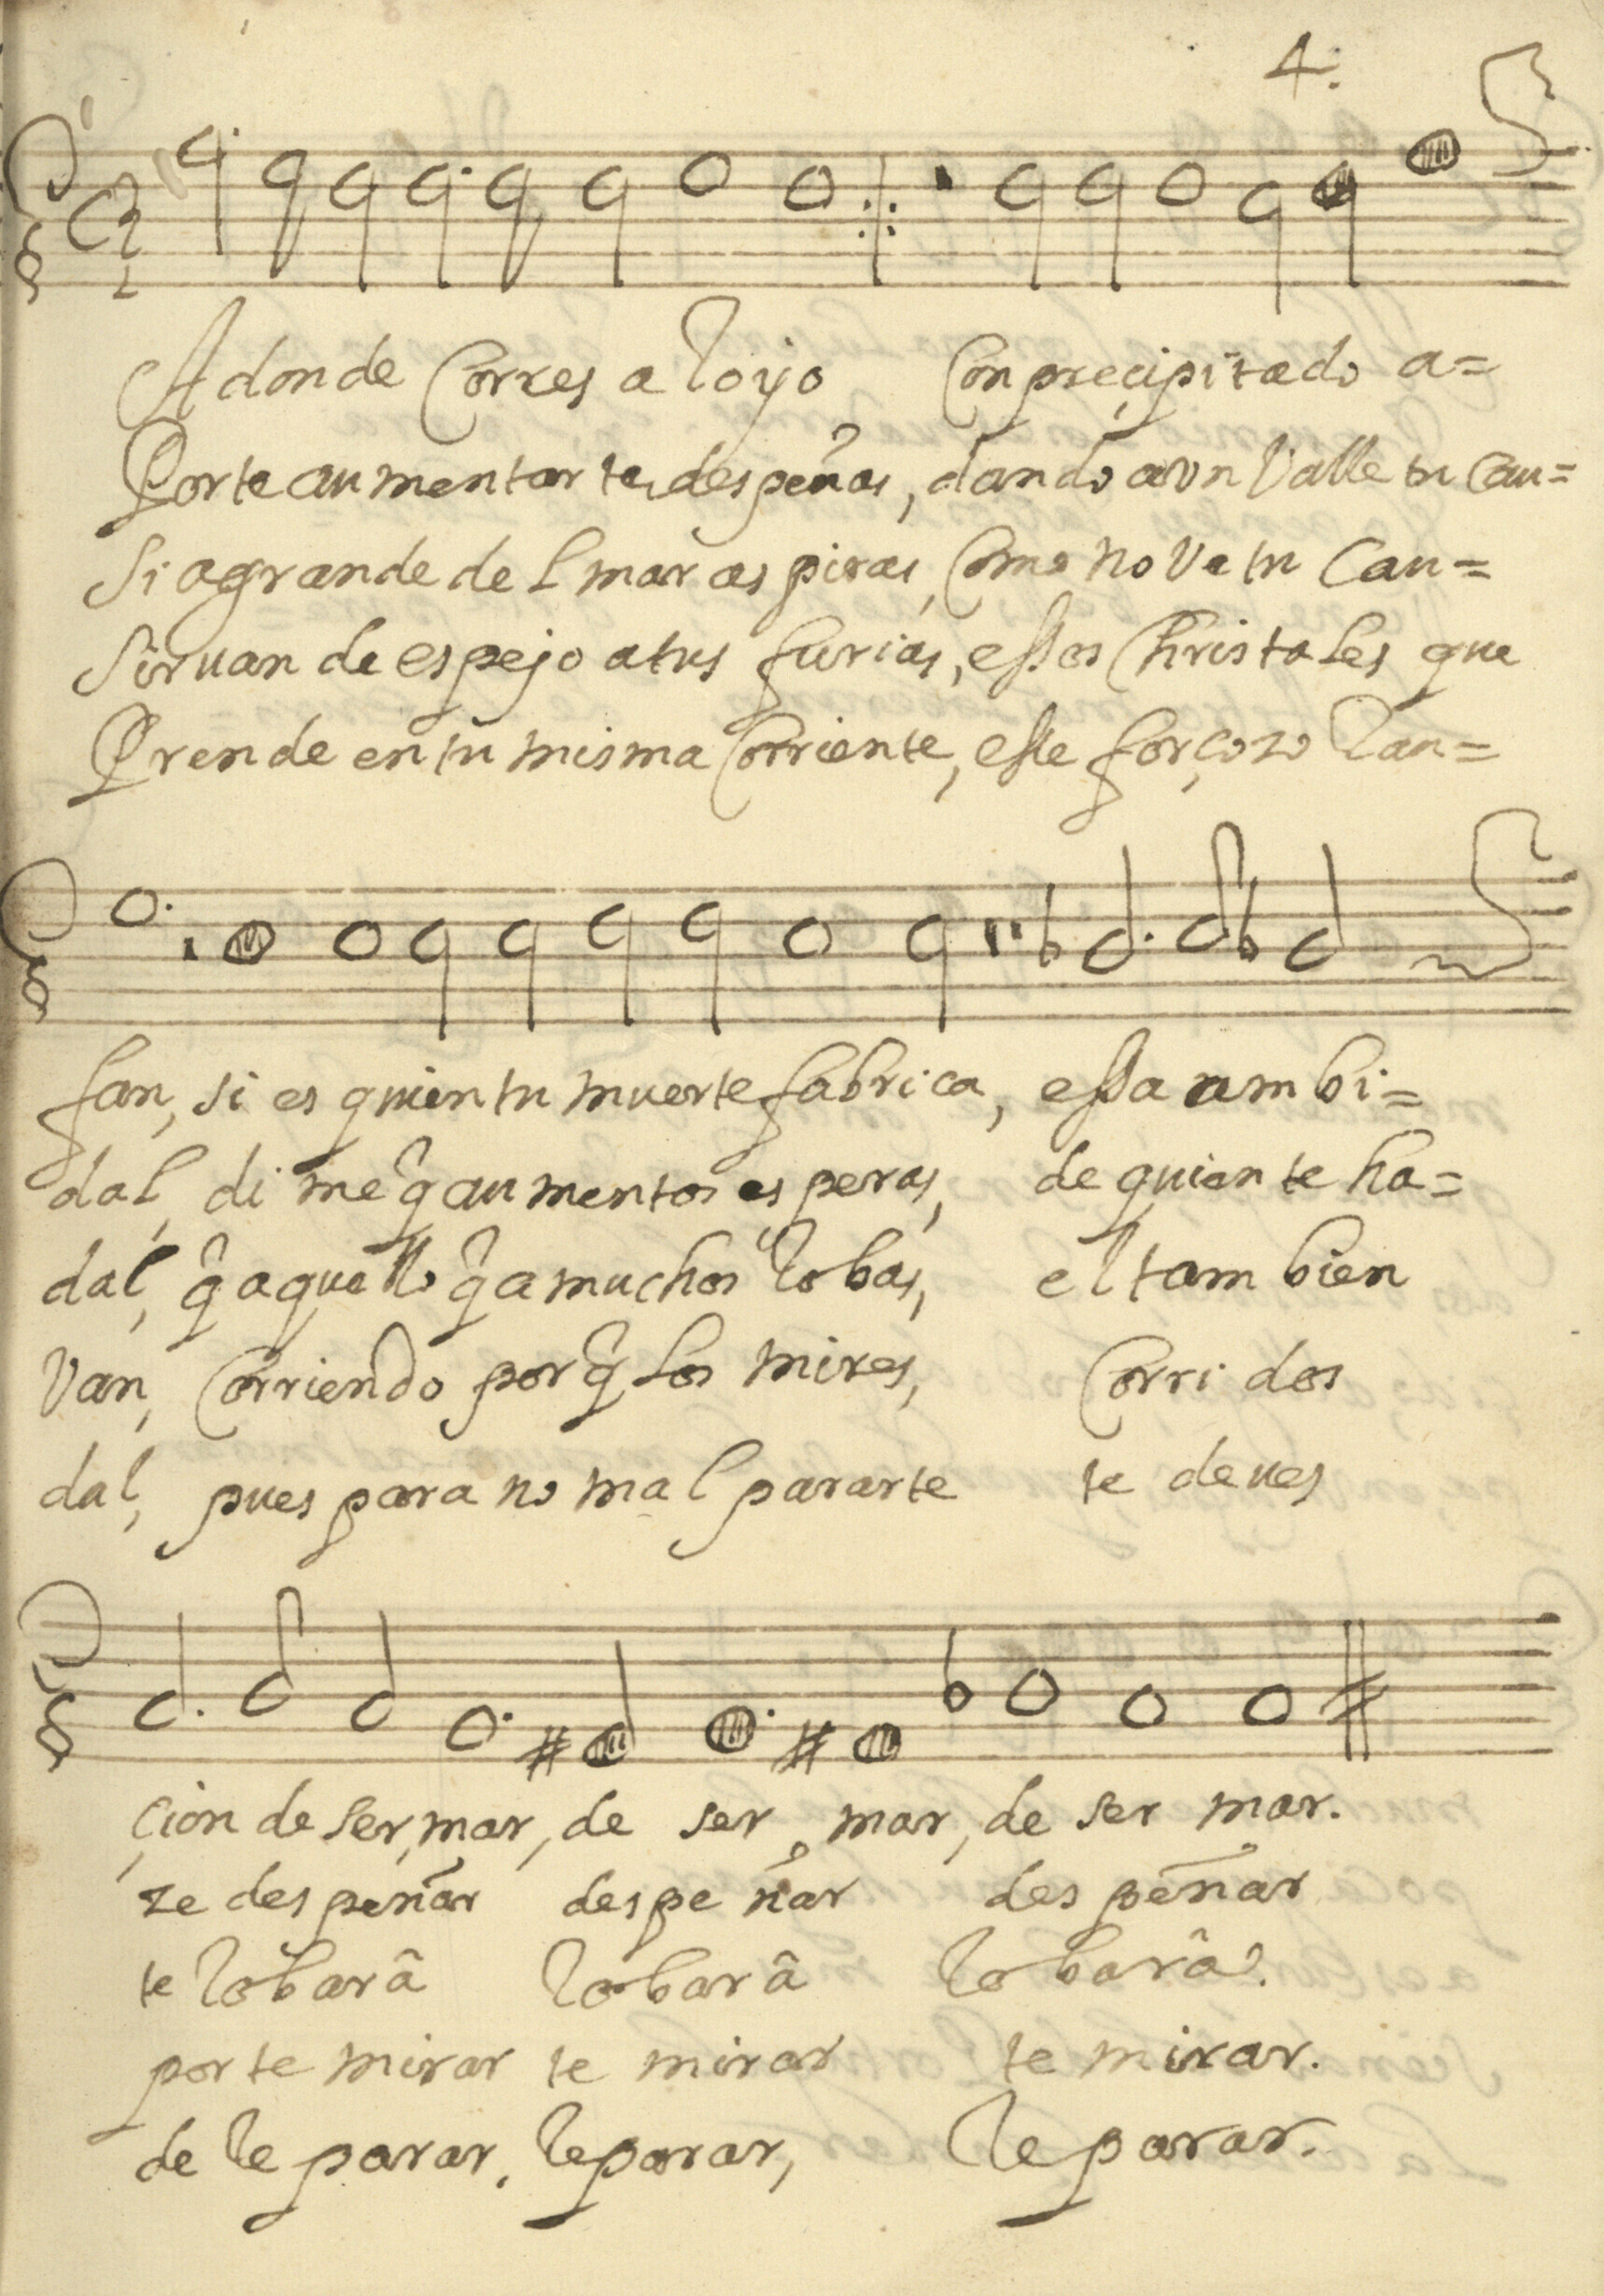 4.
Adonde Corres aRoyo Con preçipitado a=
Porte aumentar te despeñas, dando a vn Valle tu Cau=
Si a grande del mar aspiras, Como no Ve tu Cau=
Siruan de espejo a tus furias, essos Christales que
Prende en tu misma Corriente, esse forçozo Rau=
fan, si es quien tu muerte fabrica, essa ambi=
dal, di me q̂ aumentos esperas, de quien te ha=
dal, q̂ aquello q̂ a muchos Robas, el tambien
Van, Corriendo porq̂ los mires, Corridos
dal, pues para no mal pararte te deues
çion de ser, mar, de ser, mar, de ser mar.
ze despeñar despeñar despeñar
te Robarâ Robarâ Robarâ.
por te mirar te mirar te mirar.
de Reparar, Reparar, Reparar.